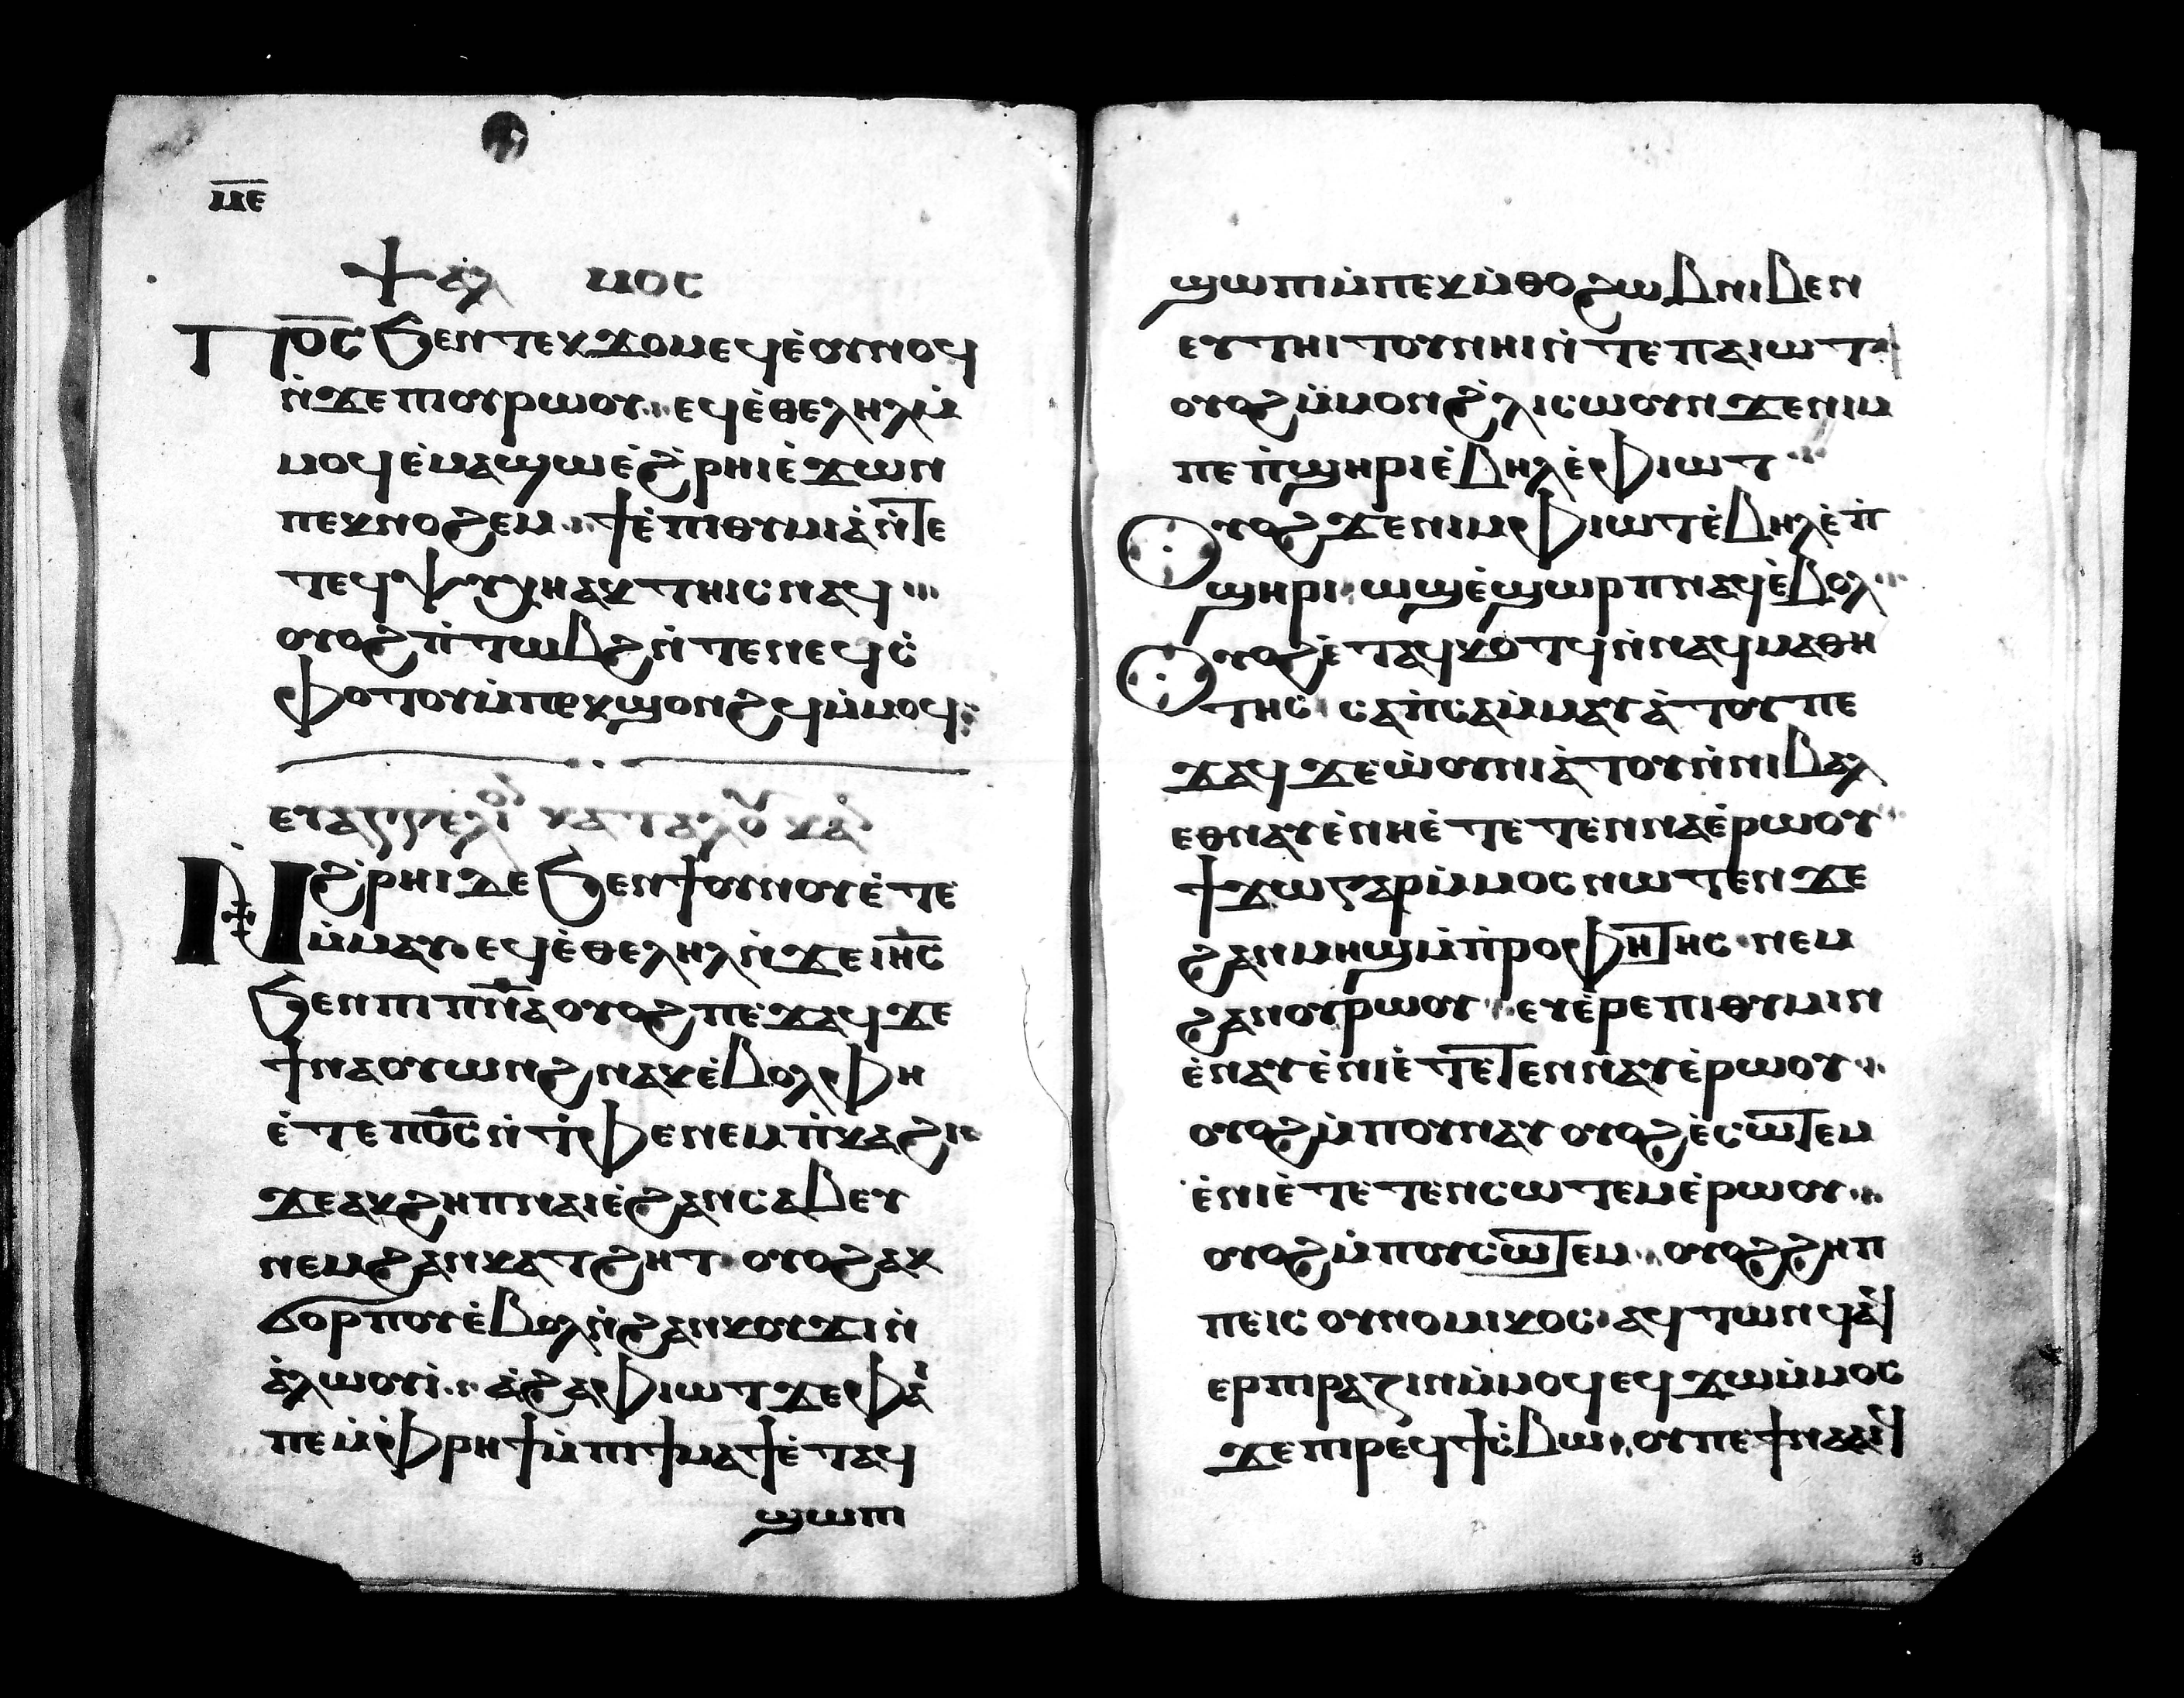 ⲙ̅ⲉ̅
ⲯⲁⲗⲙⲟⲥ
Ⲡⲟ̅ⲥ̅ ϧⲉⲛⲧⲉⲕϫⲟⲙⲉϥⲉ̀ⲟⲩⲛⲟϥ
ⲛ̀ϫⲉⲡⲓⲟⲩⲣⲱⲟⲩ ⲉϥⲉ̀ⲑⲉⲗⲏⲗⲙ̀
ⲙⲟϥ ⲉ̀ⲙⲁϣⲱ ⲉ̀ϩ̀ⲣⲏⲓ ⲉ̀ϫⲱⲛ
ⲡⲉⲕⲛⲟϩⲉⲙ ϯⲉ̀ⲡⲓⲑⲩⲙⲓⲁ̀ ⲛ̀ⲧⲉ
ⲧⲉϥⲯⲩⲭⲏ ⲁⲕⲧⲏⲓⲥ ⲛⲁϥ
ⲟⲩⲟϩ ⲡ̀ⲧⲱⲃϩ ⲛ̀ⲧⲉⲛⲉϥⲥ̀
ⲫⲟⲧⲟⲩ ⲙ̀ⲡⲉⲕϣⲟⲛϩϥ ⲙ̀ⲙⲟϥ
ⲉⲩⲁⲅⲅⲉⲗⲓⲟⲛ ⲕⲁⲧⲁ ⲗⲟⲩⲕⲁⲛ
Ⲛ̀ϩ̀ⲣⲏⲓ ⲇⲉ ϧⲉⲛϯⲟⲩⲛⲟⲩ ⲉ̀ⲧⲉ
ⲙ̀ⲙⲁⲩ ⲉϥⲉ̀ⲑⲉⲗⲏⲗ ⲛ̀ϫⲉ ⲓⲏ̅ⲥ̅
ϧⲉⲛⲡⲓⲡⲛ̅ⲁ̅ ⲟⲩⲟϩ ⲡⲉϫⲁϥ ϫⲉ
ϯⲛⲁⲟⲩⲱⲛϩ ⲛⲁⲕ ⲉ̀ⲃⲟⲗ ⲫⲏ
ⲉ̀ⲧⲉ ⲡⲟ̅ⲥ̅ ⲛ̀ⲧ̀ⲫⲉ ⲛⲉⲙ ⲡ̀ⲕⲁϩⲓ
ϫⲉⲁⲕϩⲏⲡ ⲛⲁⲓ ⲉ̀ϩⲁⲛⲥⲁⲃⲉⲩ
ⲛⲉⲙ ϩⲁⲛⲕⲁⲧϩⲏⲧ ⲟⲩⲟϩ ⲁⲕ
ϭⲟⲣⲡⲟⲩ ⲉ̀ⲃⲟⲗ ⲛ̀ϩⲁⲛⲕⲟⲩϫⲓ ⲛ̀
ⲁ̀ⲗⲱⲟⲩⲓ̀ ⲁ̀ϩⲁ ⲫⲓⲱⲧ ϫⲉ ⲫⲁ̀
ⲡⲉ ⲙ̀ⲫⲣⲏϯ ⲙ̀ⲡⲓϯⲙⲁϯ ⲉ̀ⲧⲁϥ
ϣⲱⲡ
ϣⲱⲡⲓ ⲙ̀ⲡⲉⲕⲙ̀ⲑⲟ ϩⲱⲃ ⲛⲓⲃⲉⲛ
ⲉⲩⲧⲏⲓⲧⲟⲩ ⲛⲏⲓ ⲛ̀ⲧⲉ ⲡⲁⲓⲱⲧ
ⲟⲩⲟϩ ⲙ̀ⲙⲟⲛ ϩ̀ⲗⲓ ⲥⲱⲟⲩⲛ ϫⲉⲛⲓⲙ
ⲡⲉ ⲡ̀ϣⲏⲣⲓ ⲉ̀ⲃⲏⲗ ⲉ̀ⲫⲓⲱⲧ
Ⲟⲩⲟϩ ϫⲉ ⲛⲓⲙ ⲫⲓⲱⲧ ⲉ̀ⲃⲏⲗ ⲉ̀ⲡ̀
ϣⲏⲣⲓ ⲱϣⲉ̀ϣⲱⲣⲡ ⲛⲁϥ ⲉ̀ⲃⲟⲗ
Ⲟⲩⲟϩ ⲉ̀ⲧⲁϥⲕⲟⲧϥ ⲛ̀ⲛⲁϥⲙⲁⲑⲏ
ⲧⲏⲥ ⲥⲁⲡ̀ⲥⲁ ⲙ̀ⲙⲁⲩⲁ̀ⲧⲟⲩ ⲡⲉ
ϫⲁϥ ϫⲉ ⲱ̀ⲟⲩⲛⲓⲁ̀ⲧⲟⲩ ⲛ̀ⲛⲓⲃⲁⲗ
ⲉⲑⲛⲁⲩ ⲉ̀ⲛⲏ ⲉ̀ⲧⲉⲧⲉⲛⲛⲁ ⲉ̀ⲣⲱⲟⲩ
ϯϫⲱ ⲅⲁⲣ ⲙ̀ⲙⲟⲥ ⲛⲱⲧⲉⲛ ϫⲉ
ϩⲁⲛⲙⲏϣ ⲙ̀ⲡ̀ⲣⲟⲫⲏⲧⲏⲥ ⲛⲉⲙ
ϩⲁⲛⲟⲩⲣⲱⲟⲩ ⲉⲩⲉ̀ⲣⲉⲡⲓⲑⲩⲙⲓⲛ
ⲉ̀ⲛⲁⲩ ⲉ̀ⲛⲓⲉ̀ⲧⲉⲧⲉⲛⲛⲁⲩ ⲉ̀ⲣⲱⲟⲩ
ⲟⲩⲟϩ ⲙ̀ⲡⲟⲩⲛⲁⲩ ⲟⲩⲟϩ ⲉ̀ⲥⲱⲧⲉⲙ
ⲉ̀ⲛⲓⲉ̀ⲧⲉⲧⲉⲛⲥⲱⲧⲉⲙ ⲉ̀ⲣⲱⲟⲩ
ⲟⲩⲟϩ ⲙ̀ⲡⲟⲩⲥⲱⲧⲉⲙ ⲟⲩⲟϩ ϩⲏⲡ
ⲡⲉⲓⲥ ⲟⲩⲛⲟⲙⲓⲕⲟⲥ ⲁϥⲧⲱⲛϥ ⲁ̀
ⲉⲣⲡⲓⲣⲁⲍⲓⲛ ⲙ̀ⲙⲟϥ ⲉϥϫⲱ ⲙ̀ⲙⲟⲥ
ϫⲉ ⲡⲓⲣⲉϥϯⲥ̀ⲃⲱ ⲟⲩ ⲡⲉϯⲛⲁⲁⲓ